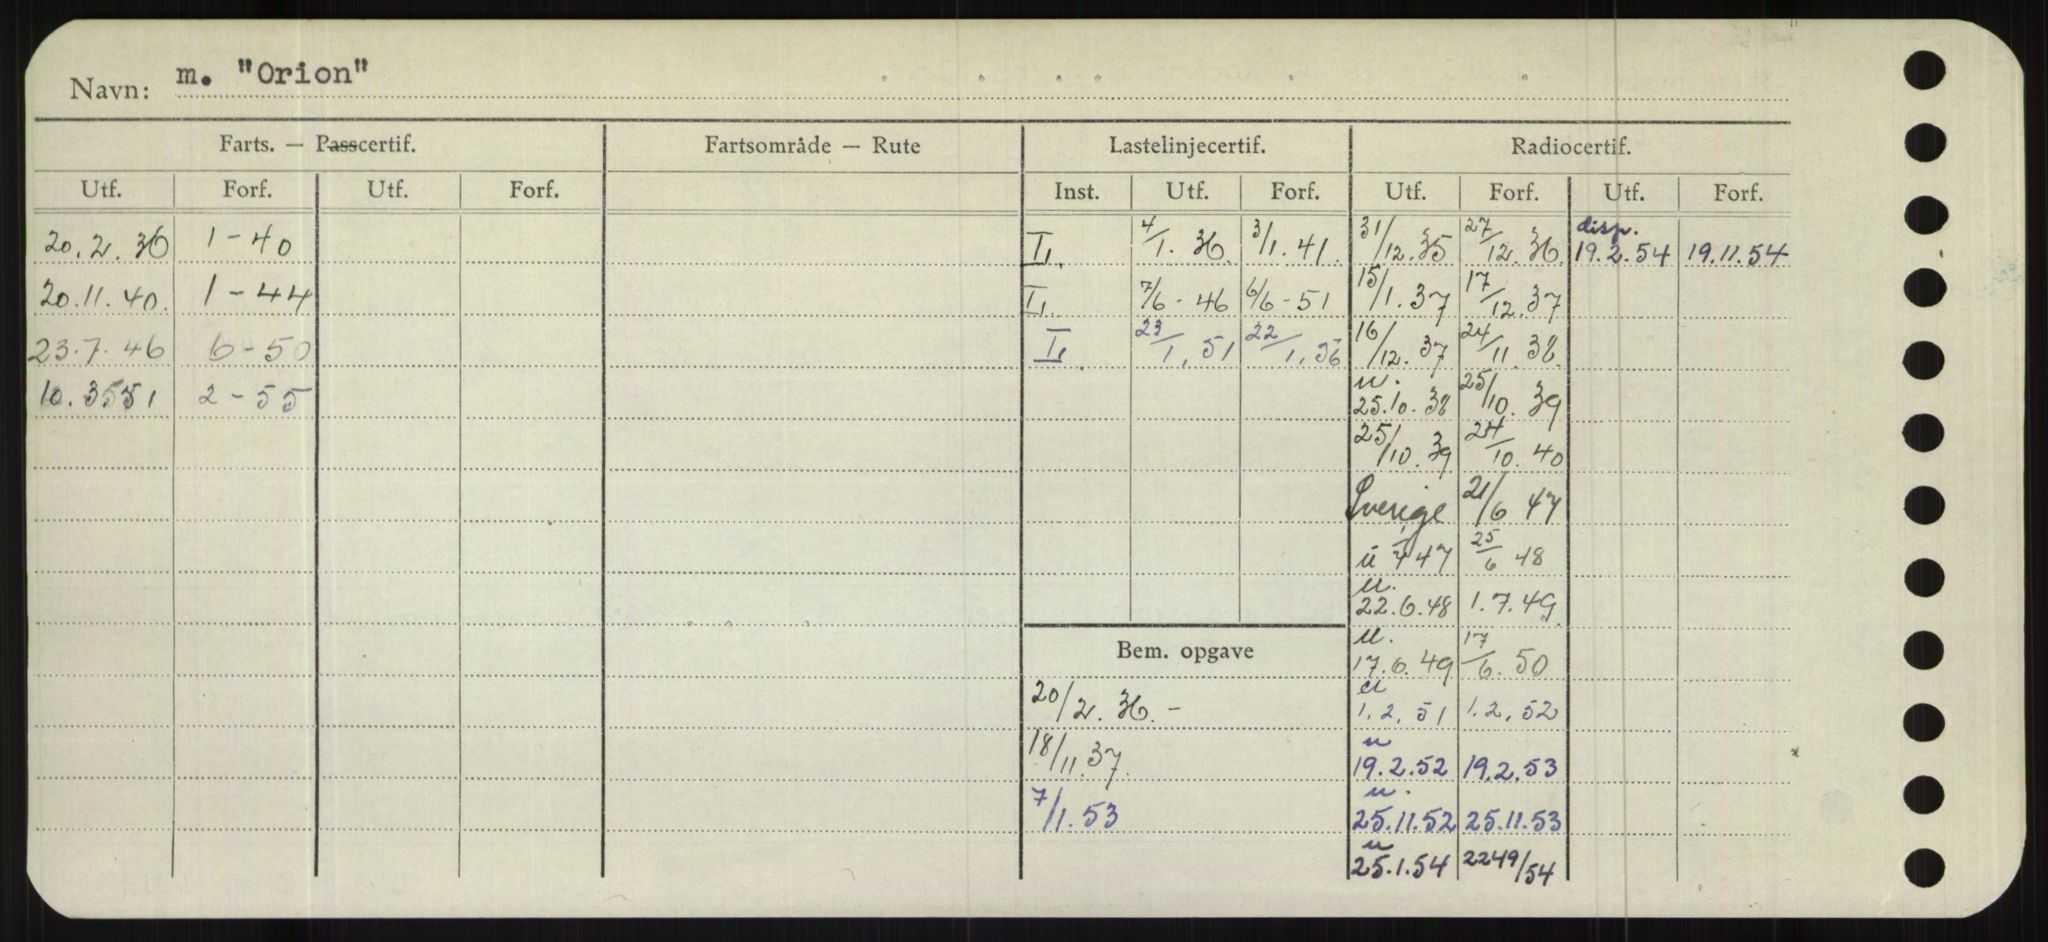 Navn: m. "Orion"
Farts. — Passcertif. Fartsområde — Rute Lastelinjecertif. Radiocertif.
Utf. Forf. Utf. Forf. Inst. Utf. Forf. Utf. Forf. Utf. Forf.
20.2.36 1-40 I, 4/1. 36. 3/1. 41. 31/12.35 27/12.36. disp. 19.2.54 19.11.54
20.11.40. 1-44 I, 7/6-46 6/6-51 15/1.37 17/12.37
23.7.46 6-50 I, 23/1.51 22/1.56 16/12.37 24/11 38.
2-55 u. 25.10.38 25/10.39
25/10.39 24/10.40
Sverige 21/6 47
u 47 25/6 48
u. 22.6.48 1.7.49.
Bem. opgave u. 17.6.49 17/6.50
20/2.36.- u 1.2.51 1.2.52
18/11.37. u 19.2.52 19.2.53
7/1.53 u. 25.11.52 25.11.53
u 25.1.54